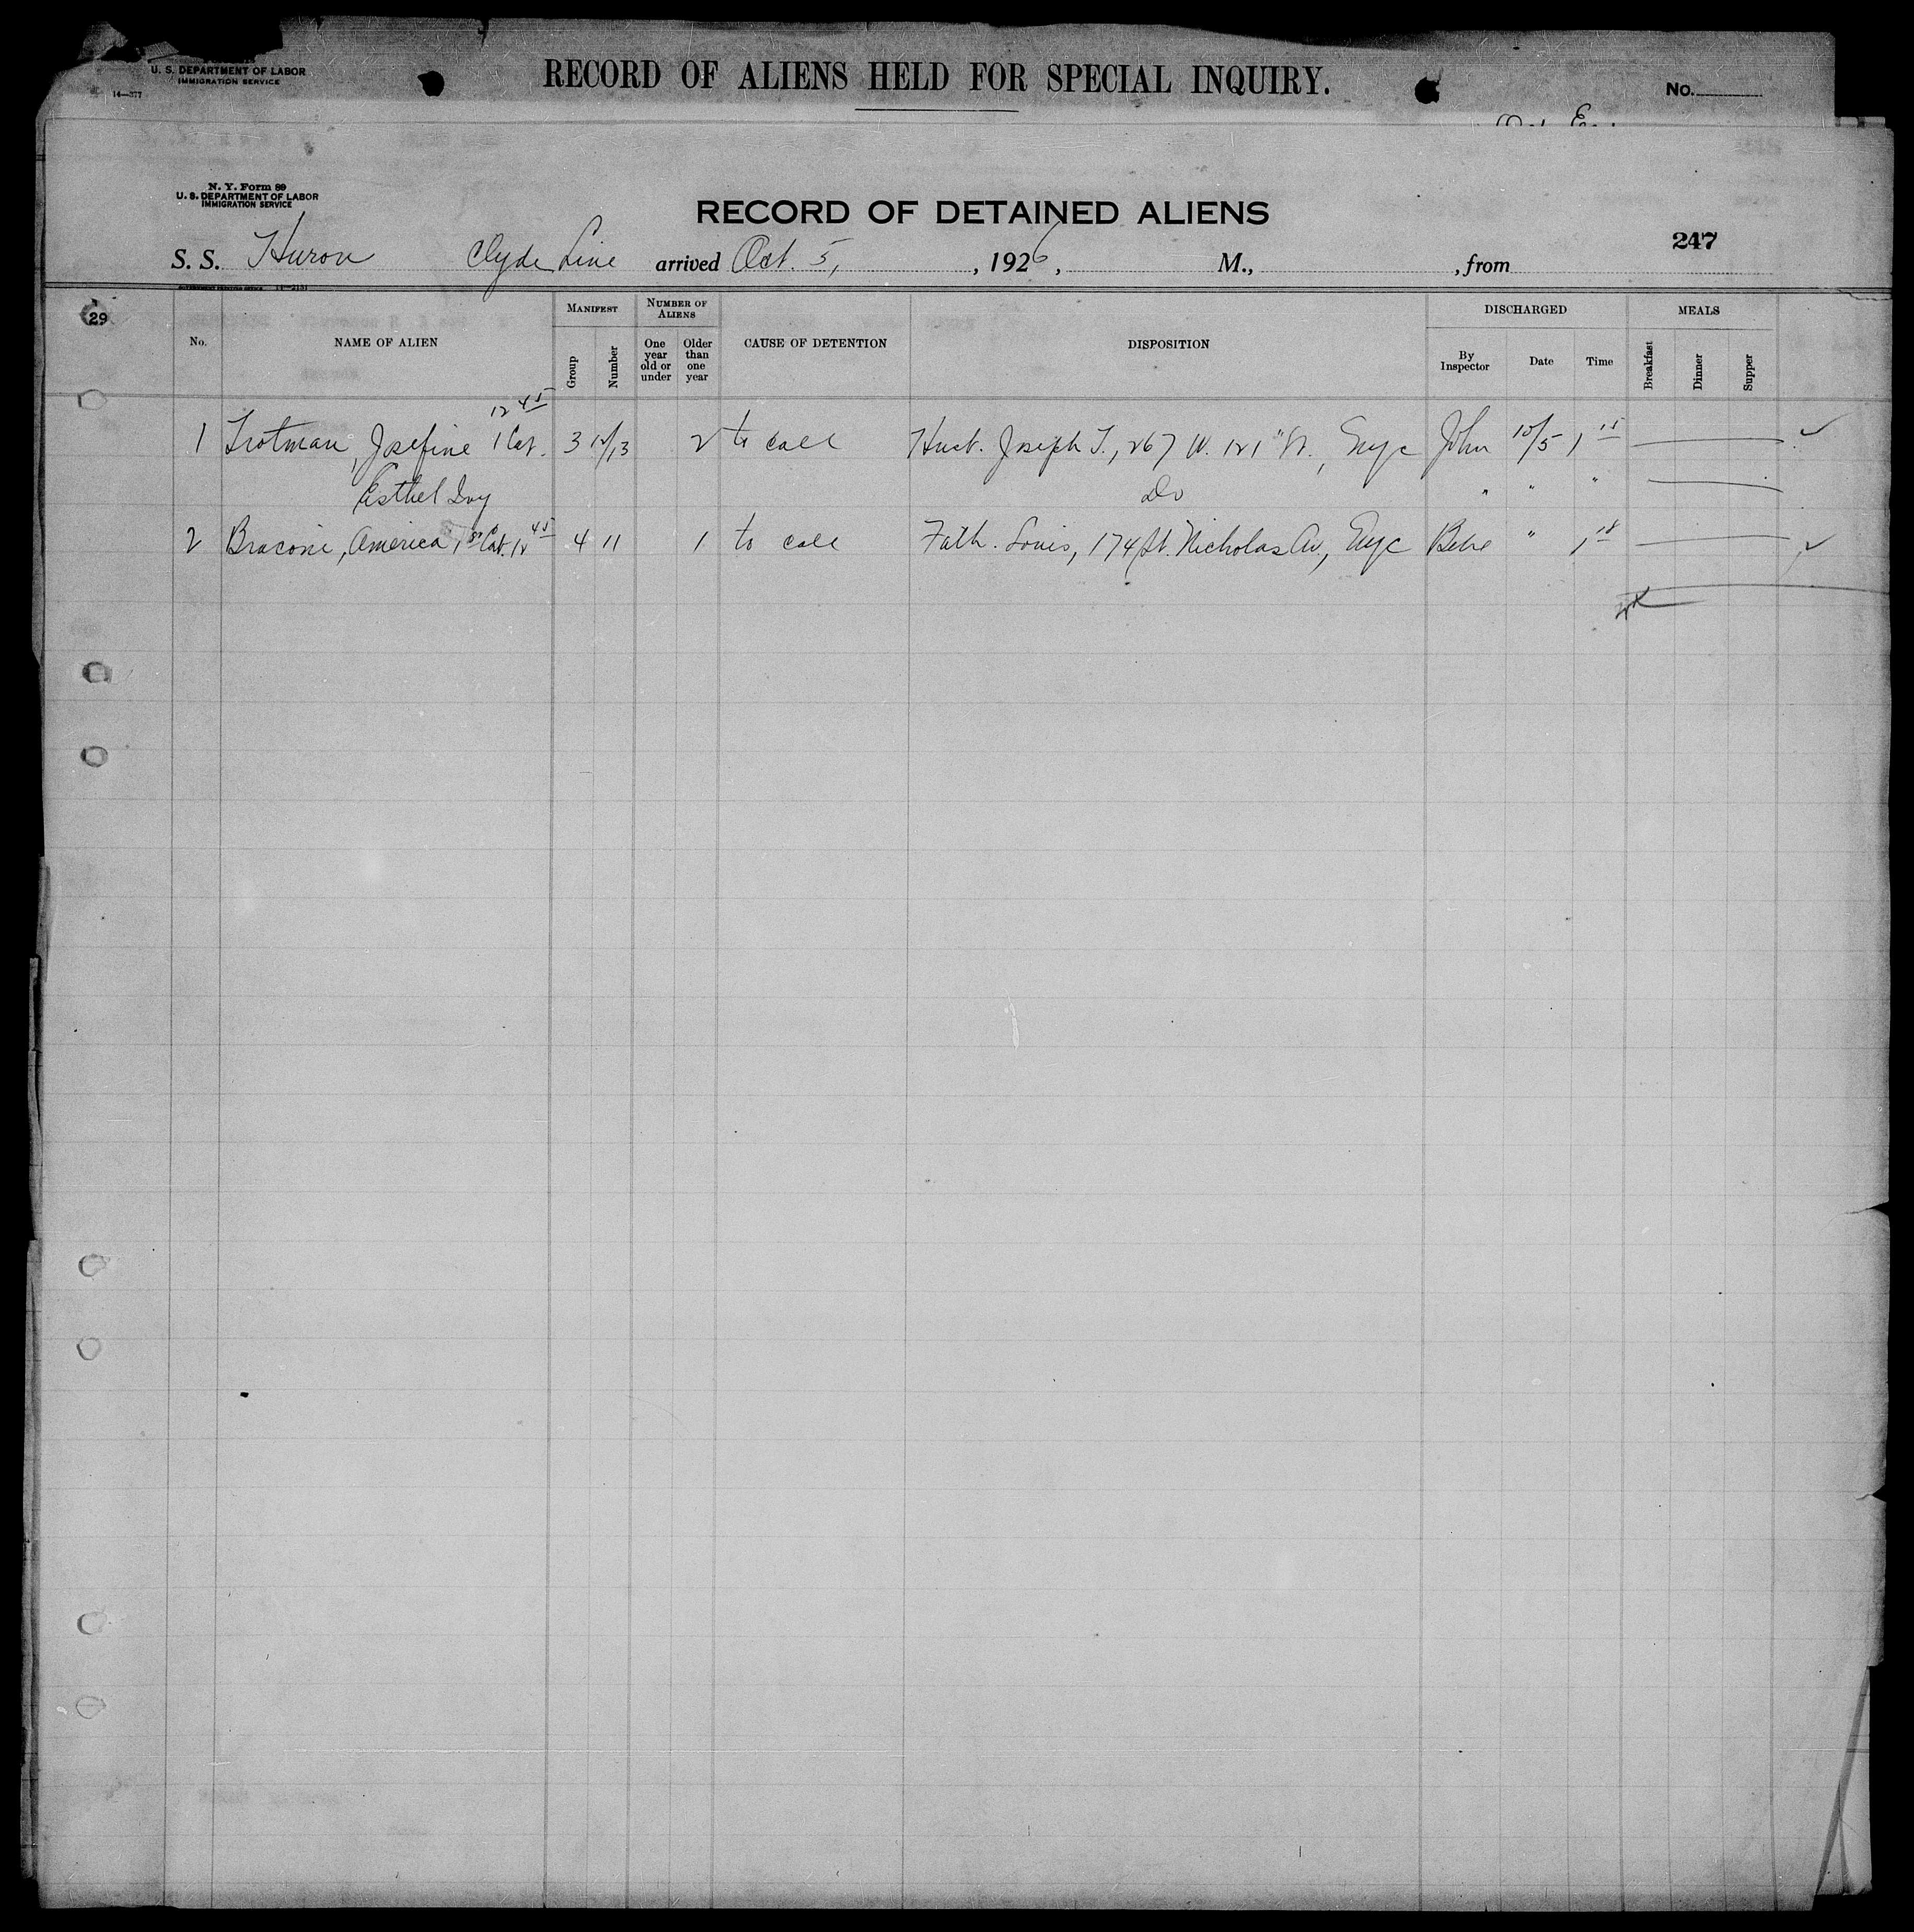 U. S. DEPARTMENT OF LABOR
IMMIGRATION SERVICE
14—377
RECORD OF ALIENS HELD FOR SPECIAL INQUIRY.
No.
N. Y. Form 89
U. S. DEPARTMENT OF LABOR
IMMIGRATION SERVICE
RECORD OF DETAINED ALIENS
247
S. S. Huron Clyde Line arrived Oct. 5, , 1926, M., , from
GOVERNMENT PRINTING OFFICE
29
No. NAME OF ALIEN MANIFEST Group Number NUMBER OF ALIENS One year old or under Older than one year CAUSE OF DETENTION DISPOSITION DISCHARGED By Inspector Date Time MEALS Breakfast Dinner Supper
12 45
1 Trotman, Josefine 1 Cab. 3 12/13 2 to call Husb. Joseph T., 267 W. 121" St., Nyc John 10/5 1 15
Esthel Ivy Do " " "
2 Braconi, America, 1st Cab. 12 45 4 11 1 to call Fath. Louis, 174 St. Nicholas Av., Nyc " 1 18